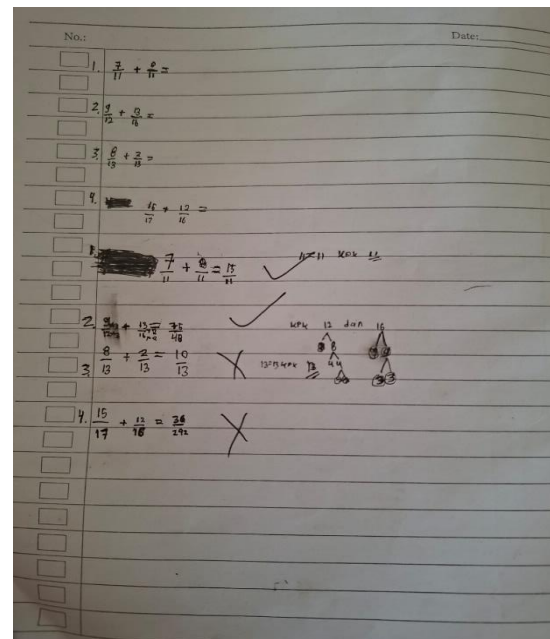 No.: Date:
1. 7/11 + 8/11 =
2. 9/12 + 13/16 =
3. 8/13 + 2/13 =
4. 15/17 + 12/16 =
7/11 + 8/11 = 15/11 11 = 11 KPK 11
2. + 13/16 = 75/48 KPK 12 dan 16
3. 8/13 + 2/13 = 10/13 13 = 13 KPK 13
4. 15/17 + 12/16 = 36/292